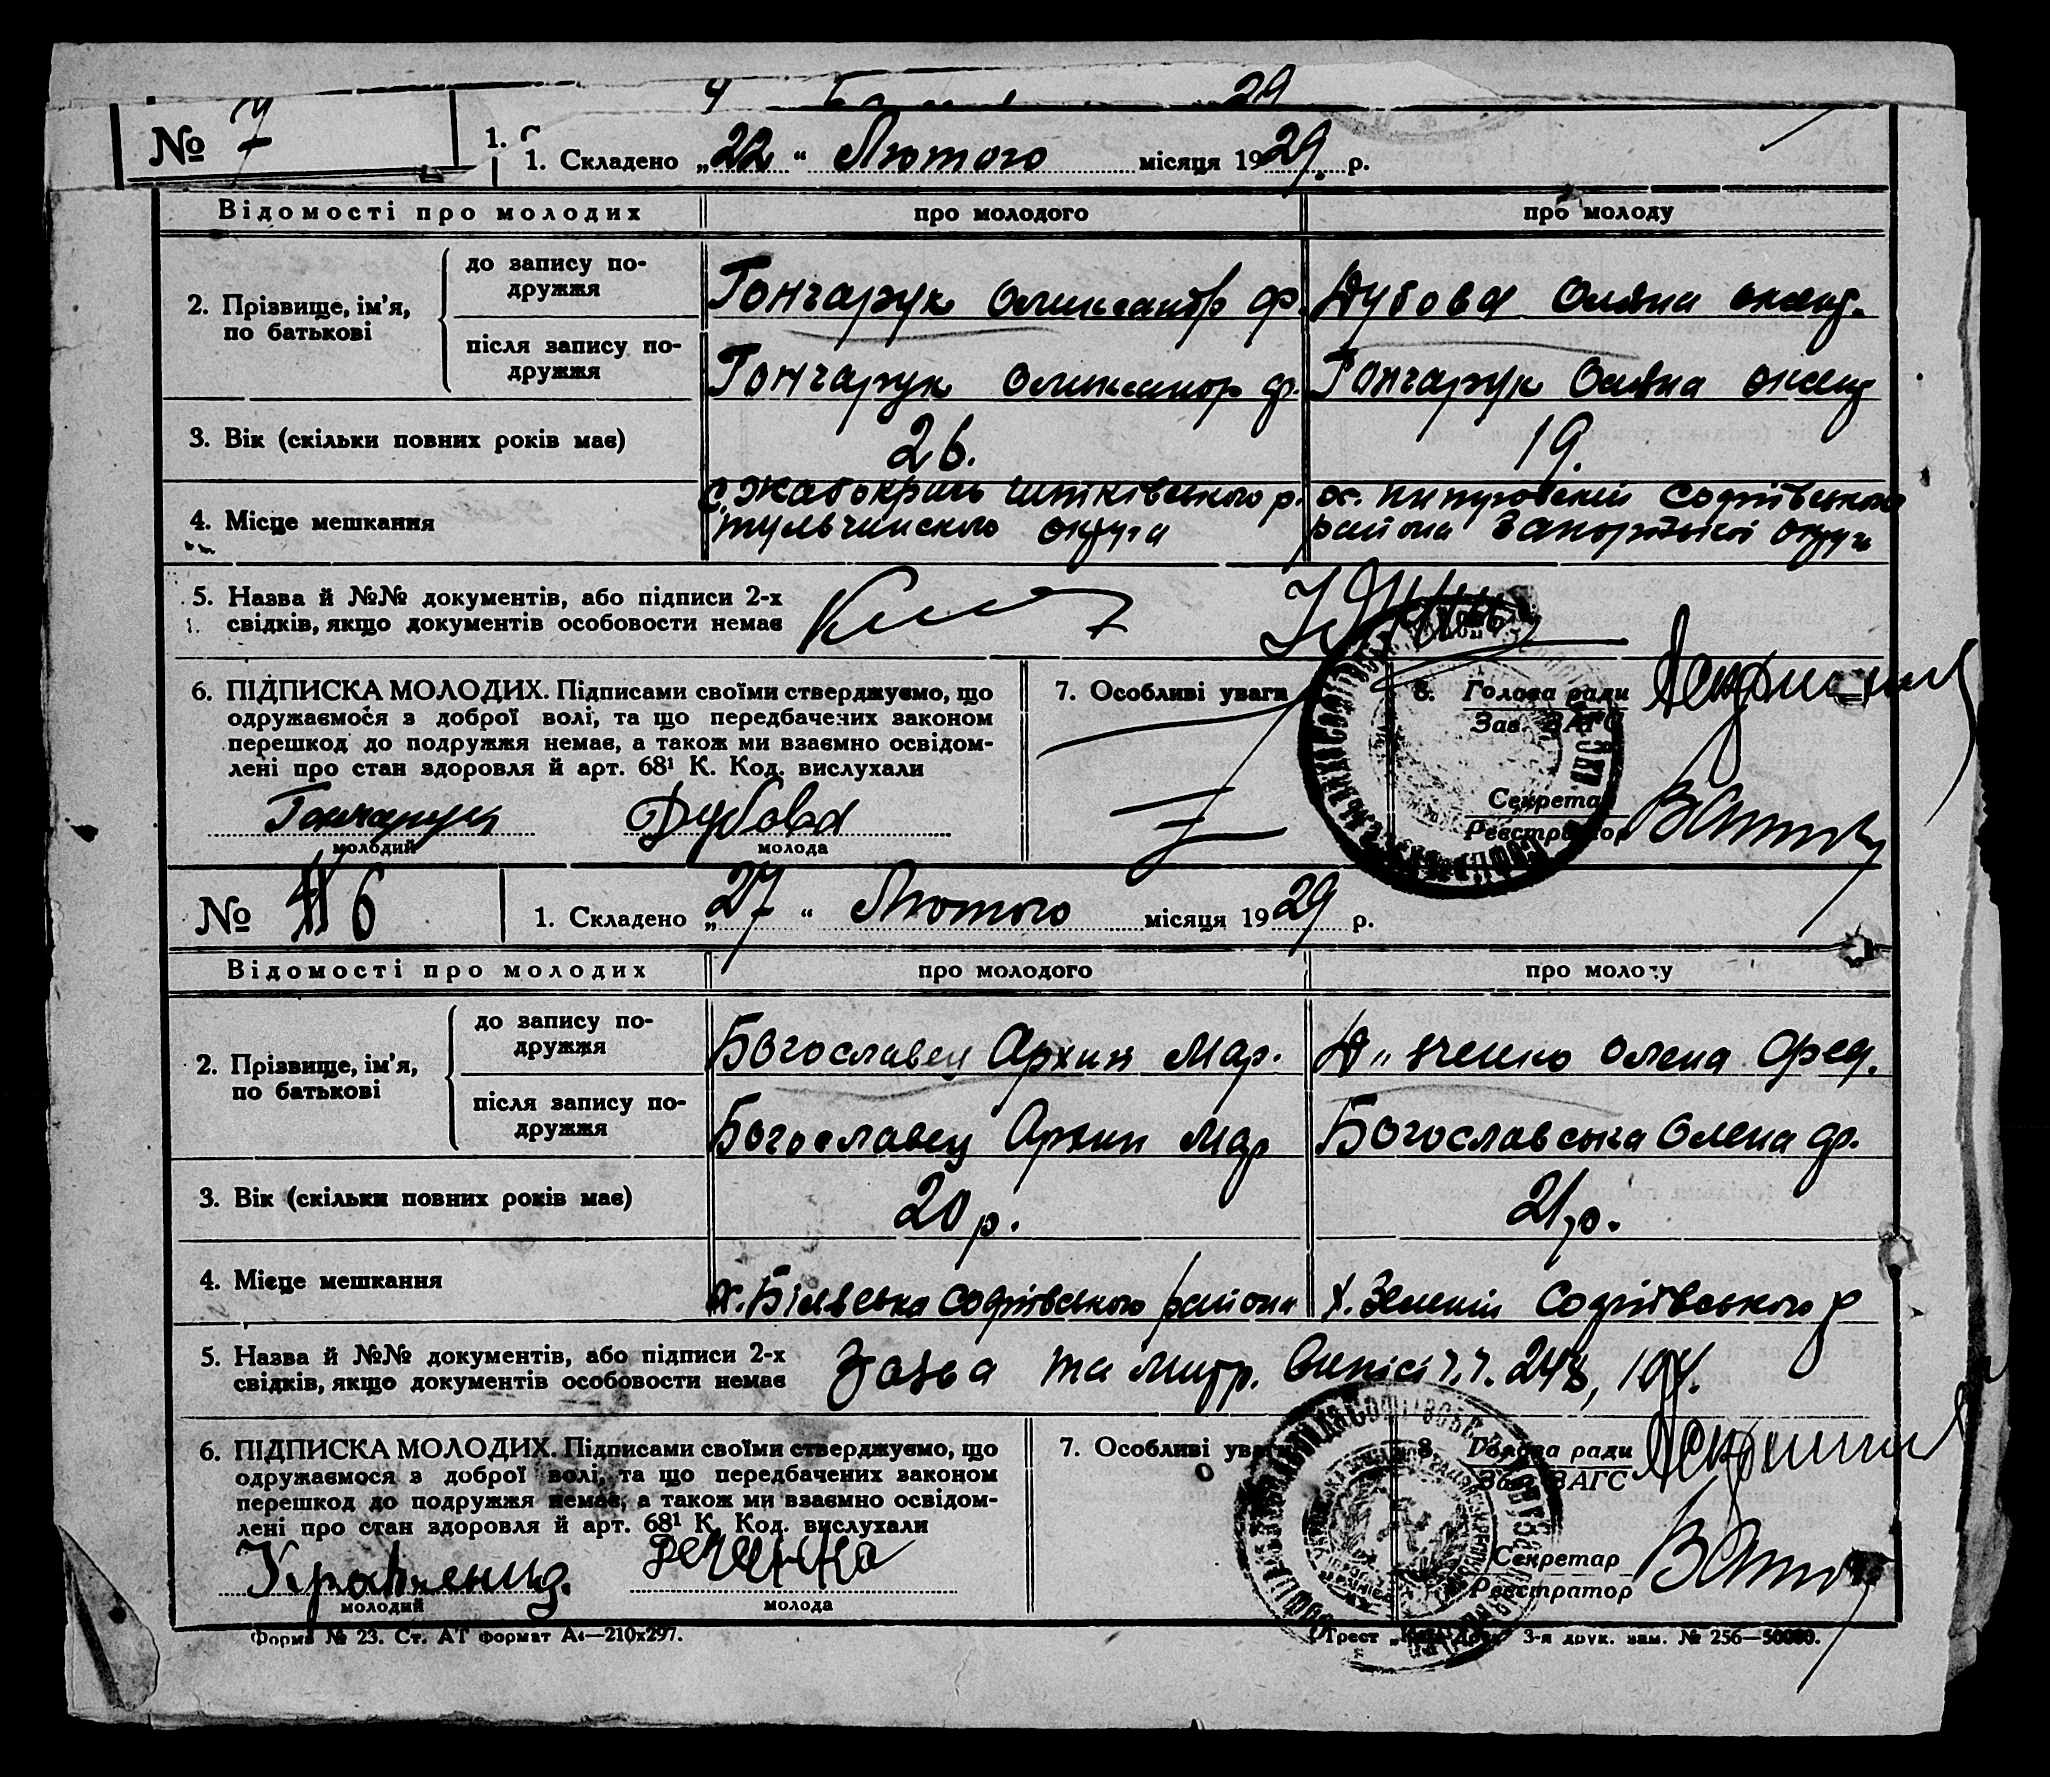 № 7
1. Складено „22“ Лютого місяця 1929. р.
Відомості про молодих про молодого про молоду
2. Прізвище, ім'я, по батькові
до запису подружжя
Гончарук Олександр Ф. Дубова Оляна
після запису подружжя
Гончарук Олександр Ф. Гончарук Оляна
3. Вік (скільки повних років має) 26. 19.
4. Місце мешкання
с. Жабокрич р. х. Софіївського
Тульчинського округа района Запорізької округи
5. Назва й №№ документів, або підписи 2-х
свідків, якщо документів особовости немає
6. ПІДПИСКА МОЛОДИХ. Підписами своїми стверджуємо, що
одружаємося з доброї волі, та що передбачених законом
перешкод до подружжя немає, а також ми взаємно освідом-
лені про стан здоровля й арт. 68¹ К. Код. вислухали
Гончарук Дубова
молодий молода
7. Особливі уваги
8. Голова ради
Зав. ЗАГС
Секретар
Реєстратор
№ 6
1. Складено „27“ Лютого місяця 1929 р.
Відомості про молодих про молодого про молоду
2. Прізвище, ім'я, по батькові
до запису подружжя
Богославец Архип Мар. Олена Фед.
після запису подружжя
Богославец Архип Мар Богославська Олена Ф.
3. Вік (скільки повних років має) 20 р. 21 р.
4. Місце мешкання
х. Софіївського района х. Зелений Софіївського р
5. Назва й №№ документів, або підписи 2-х
свідків, якщо документів особовости немає
та метр. виписі
6. ПІДПИСКА МОЛОДИХ. Підписами своїми стверджуємо, що
одружаємося з доброї волі, та що передбачених законом
перешкод до подружжя немає, а також ми взаємно освідом-
лені про стан здоровля й арт. 68¹ К. Код. вислухали
молодий молода
7. Особливі уваги
8. Голова ради
Зав. ЗАГС
Секретар
Реєстратор
Форма № 23. Ст. АТ формат А4—210х297.
Трест 3-я друк. зам. № 256—50000.